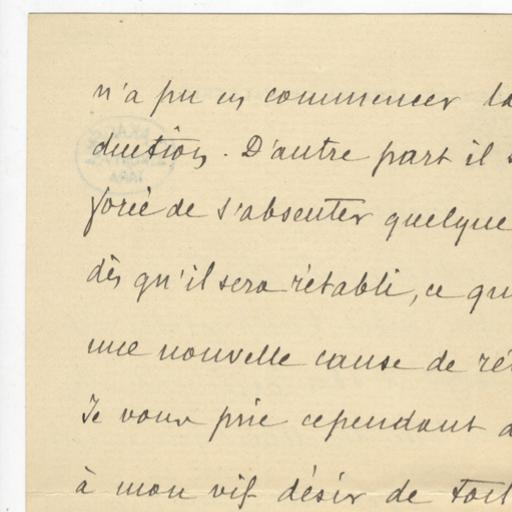 n'a pu en commencer la
duction. D'autre part il s
forcé de s'absenter quelque
dès qu'il sera rétabli, ce qu
une nouvelle cause de ré
Je vous prie cependant d
à mon vif désir de